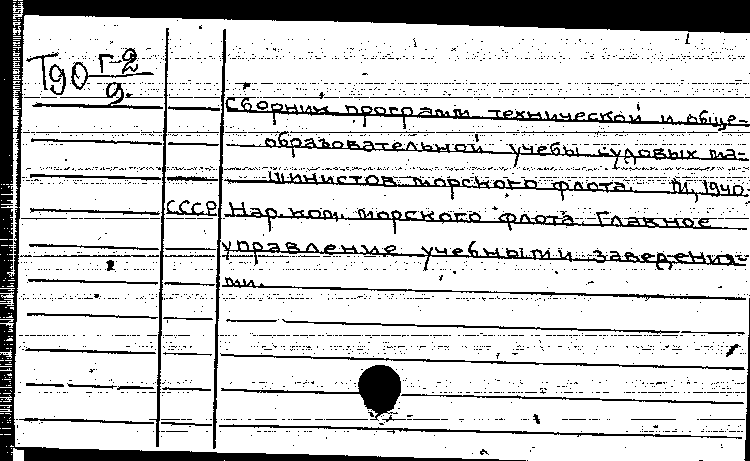 Т90 Г2
9.
Сборник программ технической и обще-
образовательной учебы судовых ма-
шинистов морского флота. М., 1940.
СССР Нар. ком. морского флота. Главное
управление учебными заведения-
ми.